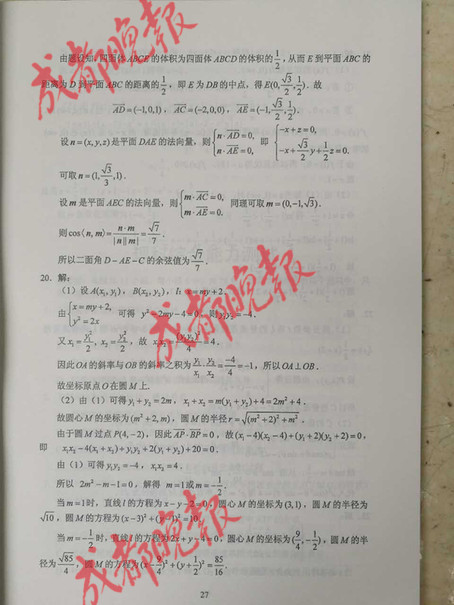 由题设知,四面体ABCE的体积为四面体ABCD的体积的1/2,从而E到平面ABC的
距离为D到平面ABC的距离的1/2,即E为DB的中点,得E(0,√3/2,1/2).故
AD=(-1,0,1),AC=(-2,0,0),AE=(-1,√3/2,1/2).
设n=(x,y,z)是平面DAE的法向量,则{n·AD=0, n·AE=0, 即{-x+z=0, -x+√3/2y+1/2z=0.
可取n=(1,√3/3,1).
设m是平面AEC的法向量,则{m·AC=0, m·AE=0. 同理可取m=(0,-1,√3).
则cos⟨n,m⟩=n·m/|n||m|=√7/7.
所以二面角D-AE-C的余弦值为√7/7.
20.解:
(1)设A(x₁,y₁),B(x₂,y₂),l:x=my+2.
由{x=my+2, y²=2x 可得y²-2my-4=0,则y₁y₂=-4.
又x₁=y₁²/2,x₂=y₂²/2,故x₁x₂=(y₁y₂)²/4=4.
因此OA的斜率与OB的斜率之积为y₁/x₁·y₂/x₂=-4/4=-1,所以OA⊥OB.
故坐标原点O在圆M上.
(2)由(1)可得y₁+y₂=2m,x₁+x₂=m(y₁+y₂)+4=2m²+4.
故圆心M的坐标为(m²+2,m),圆M的半径r=√((m²+2)²+m²).
由于圆M过点P(4,-2),因此AP·BP=0,故(x₁-4)(x₂-4)+(y₁+2)(y₂+2)=0,
即 x₁x₂-4(x₁+x₂)+y₁y₂+2(y₁+y₂)+20=0.
由(1)可得y₁y₂=-4,x₁x₂=4.
所以2m²-m-1=0,解得m=1或m=-1/2.
当m=1时,直线l的方程为x-y-2=0,圆心M的坐标为(3,1),圆M的半径为
√10,圆M的方程为(x-3)²+(y-1)²=10.
当m=-1/2时,直线l的方程为2x+y-4=0,圆心M的坐标为(9/4,-1/2),圆M的半
径为√85/4,圆M的方程为(x-9/4)²+(y+1/2)²=85/16.
27
成都晚报
成都晚报
成都晚报